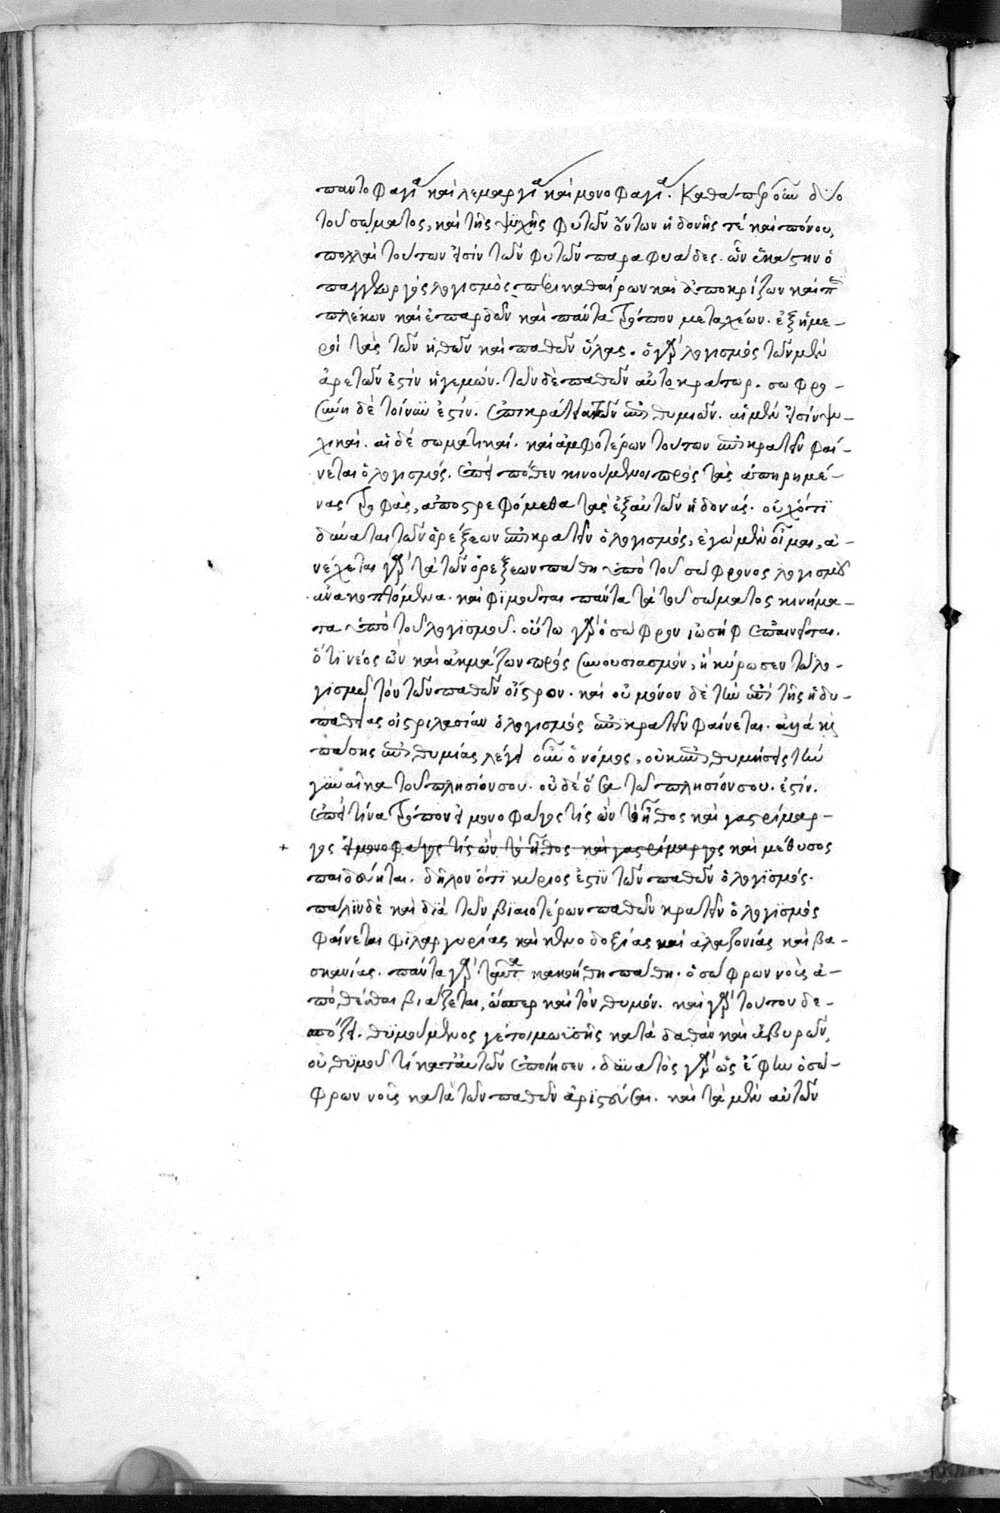 παντοφαγία καὶ λεμαργία καὶ μονοφαγία. Καθάπερ οὖν δύο
τοῦ σώματος, καὶ τῆς ψυχῆς φυτῶν ὄντων ἡδονῆς τέ καὶ πόνου,
πολλαὶ τούτων εἰσὶν τῶν φυτῶν παραφυάδες. ὧν ἑκάστην ὁ
παγγέωργός λογισμὸς περικαθαίρων καὶ ἀποκρίζων καὶ περι
πλέκων καὶ ἐπάρδων καὶ πάντα τρόπον μεταχέων. ἐξημε-
ροῖ τὰς τῶν ἠθῶν καὶ παθῶν ὕλας. ὁ γὰρ λογισμός τῶν μὲν
ἀρετῶν ἐστὶν ἡγεμών. τῶν δὲ παθῶν αὐτοκράτωρ. σωφρο-
σύνη δὲ τοίνυν ἐστίν. ἐπικράτεια τῶν ἐπιθυμιῶν. αἱ μέν εἰσιν ψυ-
χικαί. αἱ δέ σωματικαί. καὶ ἀμφοτέρων τούτων ἐπικρατεῖν φαί-
νεται ὁ λογισμός. ἐπεὶ πόθεν κινούμενοι πρὸς τὰς ἀπηρημέ-
νας τροφάς, ἀποστρεφόμεθα τὰς ἐξ αὐτῶν ἡδονάς. οὐχ ὅτι
δύναται τῶν ὀρέξεων ἐπικρατεῖν ὁ λογισμός, ἐγὼ μὲν οἶμαι, ἀ-
νέχεται γὰρ τὰ τῶν ὀρέξεων πάθη ὑπὸ τοῦ σώφρονος λογισμοῦ
ἀνακοπτόμενα. καὶ φιμοῦται πάντα τὰ τοῦ σώματος κινήμα-
τα ὑπὸ τοῦ λογισμοῦ. οὕτω γὰρ ὁ σώφρων ἰωσήφ ἐπαινεῖται.
ὅτι νέος ὢν καὶ ἀκμάζων πρὸς συνουσιασμόν, ἠκύρωσεν τῷ λο-
γισμῷ τὸν τῶν παθῶν οἶστρον. καὶ οὐ μόνον δὲ τὴν ἐπὶ τῆς ἡδυ-
παθείας οἰστρηλασίαν ὁ λογισμός ἐπικρατεῖν φαίνεται. ἀλλὰ καὶ
πάσης ἐπιθυμίας λέγει οὖν ὁ νόμος, οὐκ ἐπιθυμήσεις τὴν
γυναῖκα τοῦ πλησίον σου. οὐδέ ὅσα τῷ πλησίον σου. ἐστίν.
ἐπεὶ τίνα τρόπον εἰ μονοφάγος τίς ὢν τὸ ἦθος καὶ γαστρίμαρ-
γος εἰ μονοφάγος τίς ὢν τὸ ἦθος καὶ γαστρίμαργος καὶ μέθυσος
παιδεύηται. δῆλον ὅτι κύριος ἐστὶν τῶν παθῶν ὁ λογισμός.
πάλιν δὲ καὶ διὰ τῶν βιαιοτέρων παθῶν κρατεῖν ὁ λογισμός
φαίνεται φιλαργυρίας καὶ κενοδοξίας καὶ ἀλαζονίας καὶ βα-
σκανίας. πάντα γὰρ ταῦτα κακοήθη πάθη. ὁ σώφρων νοῦς ἀ-
πόθεσθαι βιάζεται, ὥσπερ καὶ τὸν θυμόν. καὶ γὰρ τούτου δε-
σπόζει. θυμούμενος γέ τοι μωϋσῆς κατὰ δαθὰν καὶ ἀβυρῶν,
οὐ θυμοῦ τί κατ' αὐτῶν ἐποίησεν. δύνατὸς γὰρ ὡς ἔφην ὁ σώ-
φρων νοῦς κατὰ τῶν παθῶν ἀριστεῦσαι. καὶ τὰ μὲν αὐτῶν